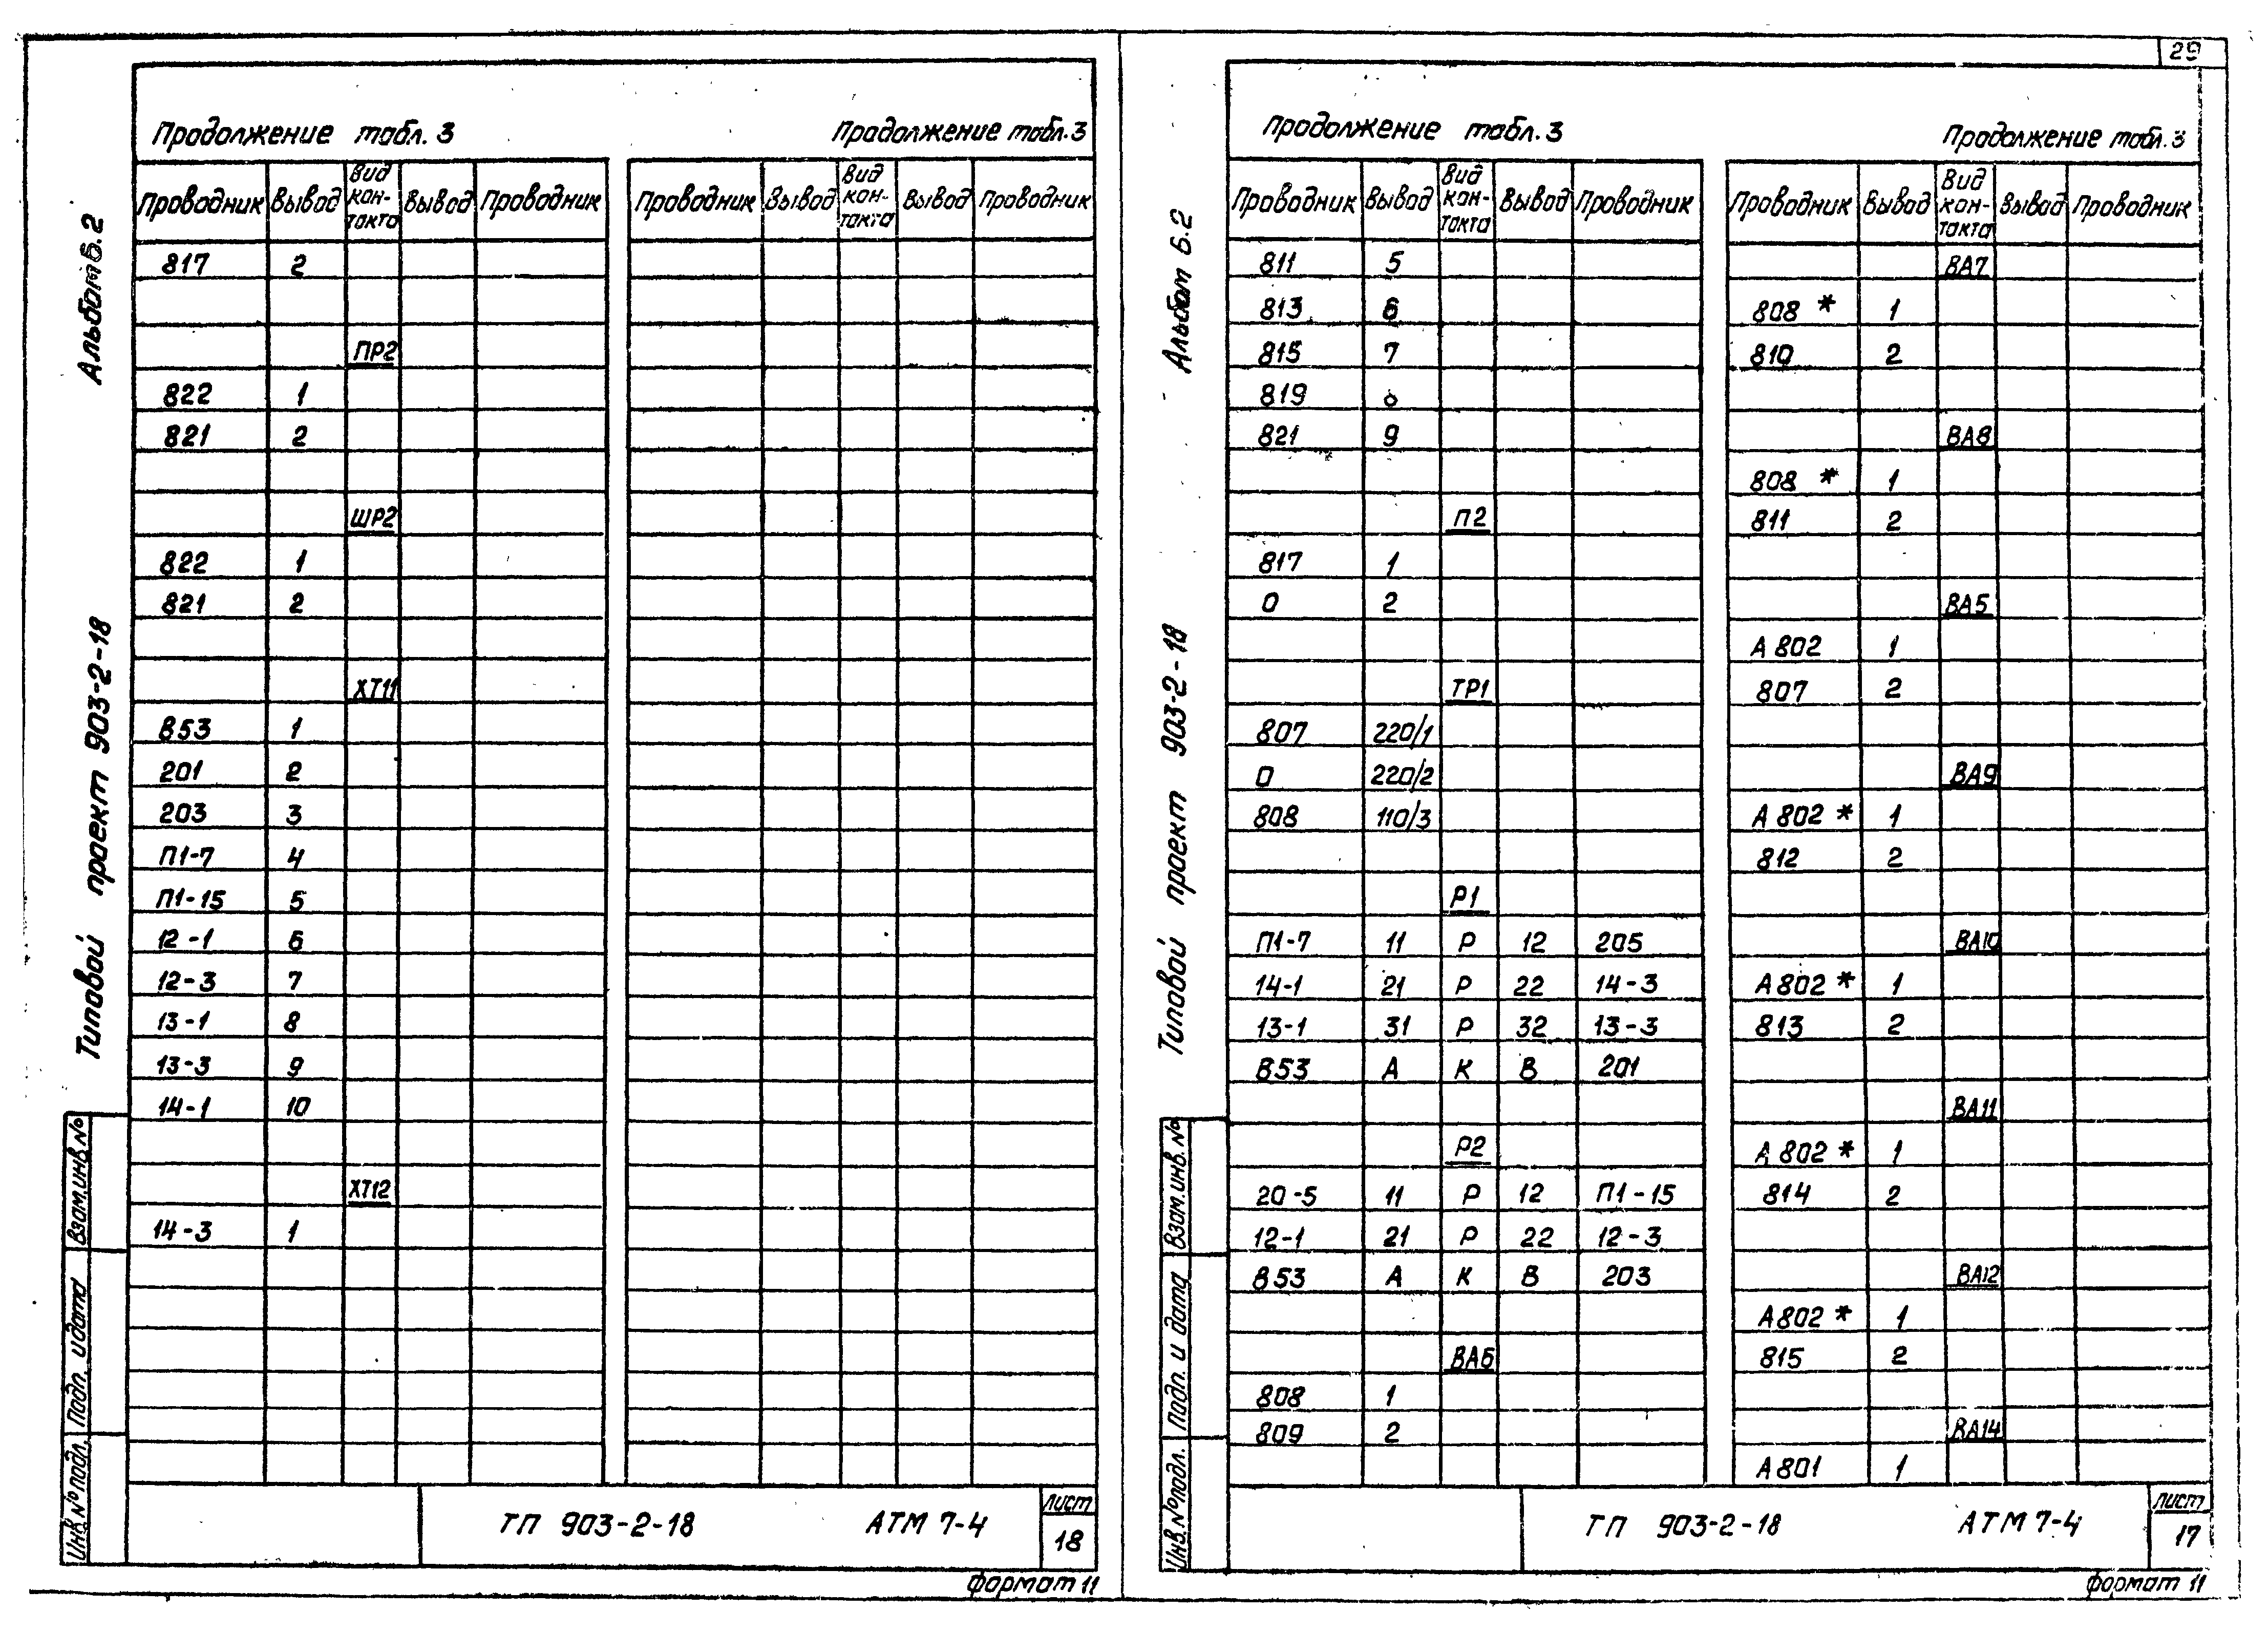 29
Альбом 6.2
Типовой проект 903-2-18
Взам.инв.№
Подп. и дата
Инв.№ подл.
Продолжение табл. 3
Проводник Вывод Вид кон-такта Вывод Проводник
817 2
ПР2
822 1
821 2
ШР2
822 1
821 2
ХТ11
853 1
201 2
203 3
П1-7 4
П1-15 5
12-1 6
12-3 7
13-1 8
13-3 9
14-1 10
ХТ12
14-3 1
Продолжение табл. 3
Проводник Вывод Вид кон-такта Вывод Проводник
ТП 903-2-18 АТМ 7-4
Лист
18
Формат 11
Альбом 6.2
Типовой проект 903-2-18
Взам.инв.№
Подп. и дата
Инв.№ подл.
Продолжение табл. 3
Проводник Вывод Вид кон-такта Вывод Проводник
811 5
813 6
815 7
819
821 9
П2
817 1
0 2
ТР1
807 220/1
0 220/2
808 110/3
Р1
П1-7 11 Р 12 205
14-1 21 Р 22 14-3
13-1 31 Р 32 13-3
853 А К В 201
Р2
20-5 11 Р 12 П1-15
12-1 21 Р 22 12-3
853 А К В 203
ВА6
808 1
809 2
Продолжение табл. 3
Проводник Вывод Вид кон-такта Вывод Проводник
ВА7
808 * 1
810 2
ВА8
808 * 1
811 2
ВА5
А802 1
807 2
ВА9
А802 * 1
812 2
ВА10
А802 * 1
813 2
ВА11
А802 * 1
814 2
ВА12
А802 * 1
815 2
ВА14
А801 1
ТП 903-2-18 АТМ 7-4
Лист
17
Формат 11